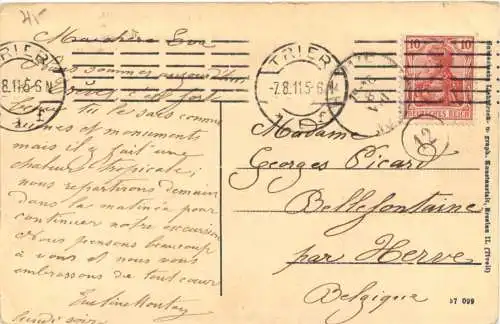 Ma chère Eva
Nous sommes aujourd'hui
Trèves c'est fort
tu le sais comme
ruines et monuments
mais il y fait un
chaleur tropicale;
nous repartirons demain
dans la matinée pour
continuer notre excursion
Nous pensons beaucoup
à vous et nous vous
embrassons de tout cœur
lundi soir
TRIER
-7.8.11.5-6N
f
TRIER
8.11.5-6N
f
10 10
DEUTSCHES REICH
12
Madame
Georges Picard
Bellefontaine
par Herve
Belgique
u. graph. Kunstanstalt, Dresden
37 099